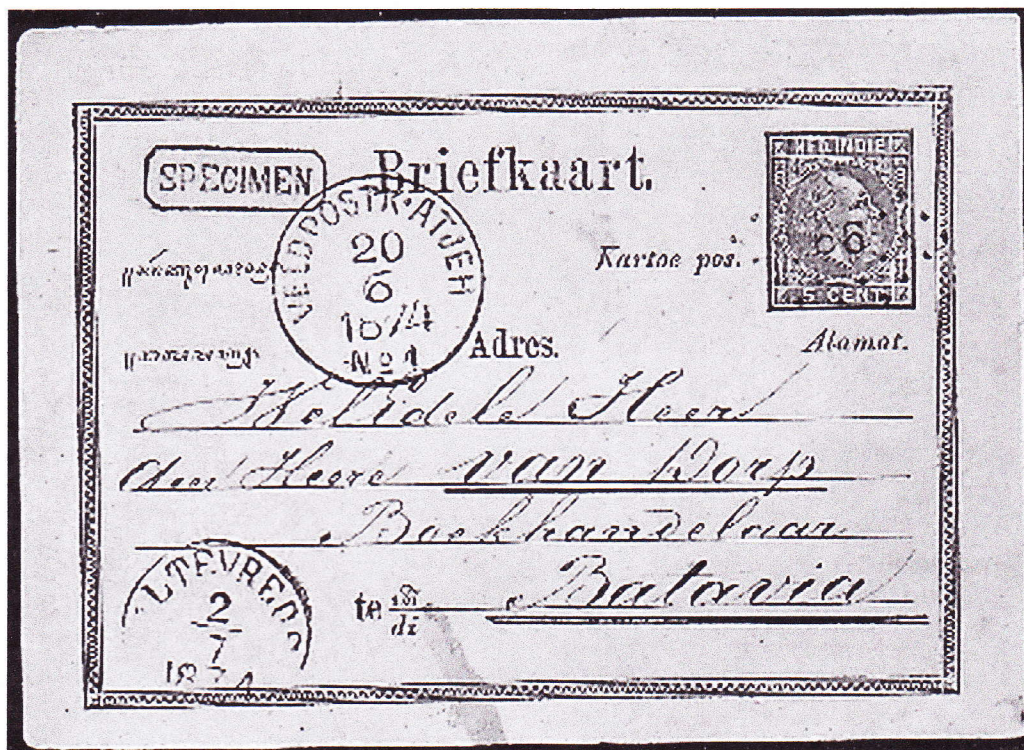 SPECIMEN
Briefkaart.
NED. INDIE
5 CENT.
VELDPOSTK. ATJEH
20
6
1874
No 1
Kartoe pos.
Adres.
Alamat.
WelEdele Heer
den Heere van Dorp
Boekhandelaar
te
di
Batavia
LTEVRED
2
7
1874